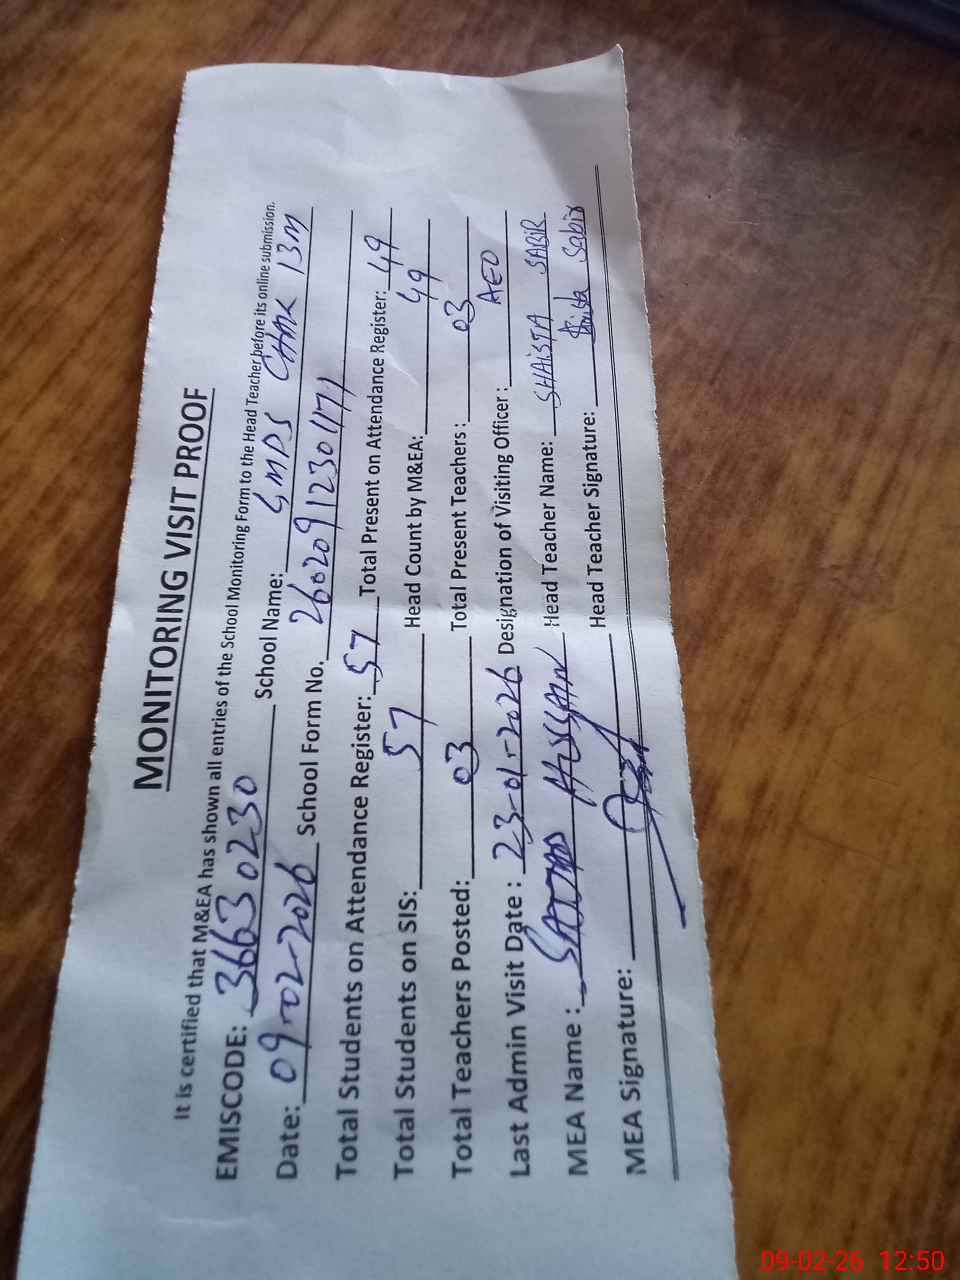 MONITORING VISIT PROOF
It is certified that M&EA has shown all entries of the School Monitoring Form to the Head Teacher before its online submission.
EMISCODE: 36630230 School Name: GMPS CHAK 13M
Date: 09-02-2026 School Form No. 26020912301171
Total Students on Attendance Register: 57 Total Present on Attendance Register: 49
Total Students on SIS: 57 Head Count by M&EA: 49
Total Teachers Posted: 03 Total Present Teachers: 03
Last Admin Visit Date : 23-01-2026 Designation of Visiting Officer : AEO
MEA Name : SAJJAD HUSSAIN Head Teacher Name: SHAISTA SABIR
MEA Signature: Head Teacher Signature: Shaista Sabir
09-02-26 12:50